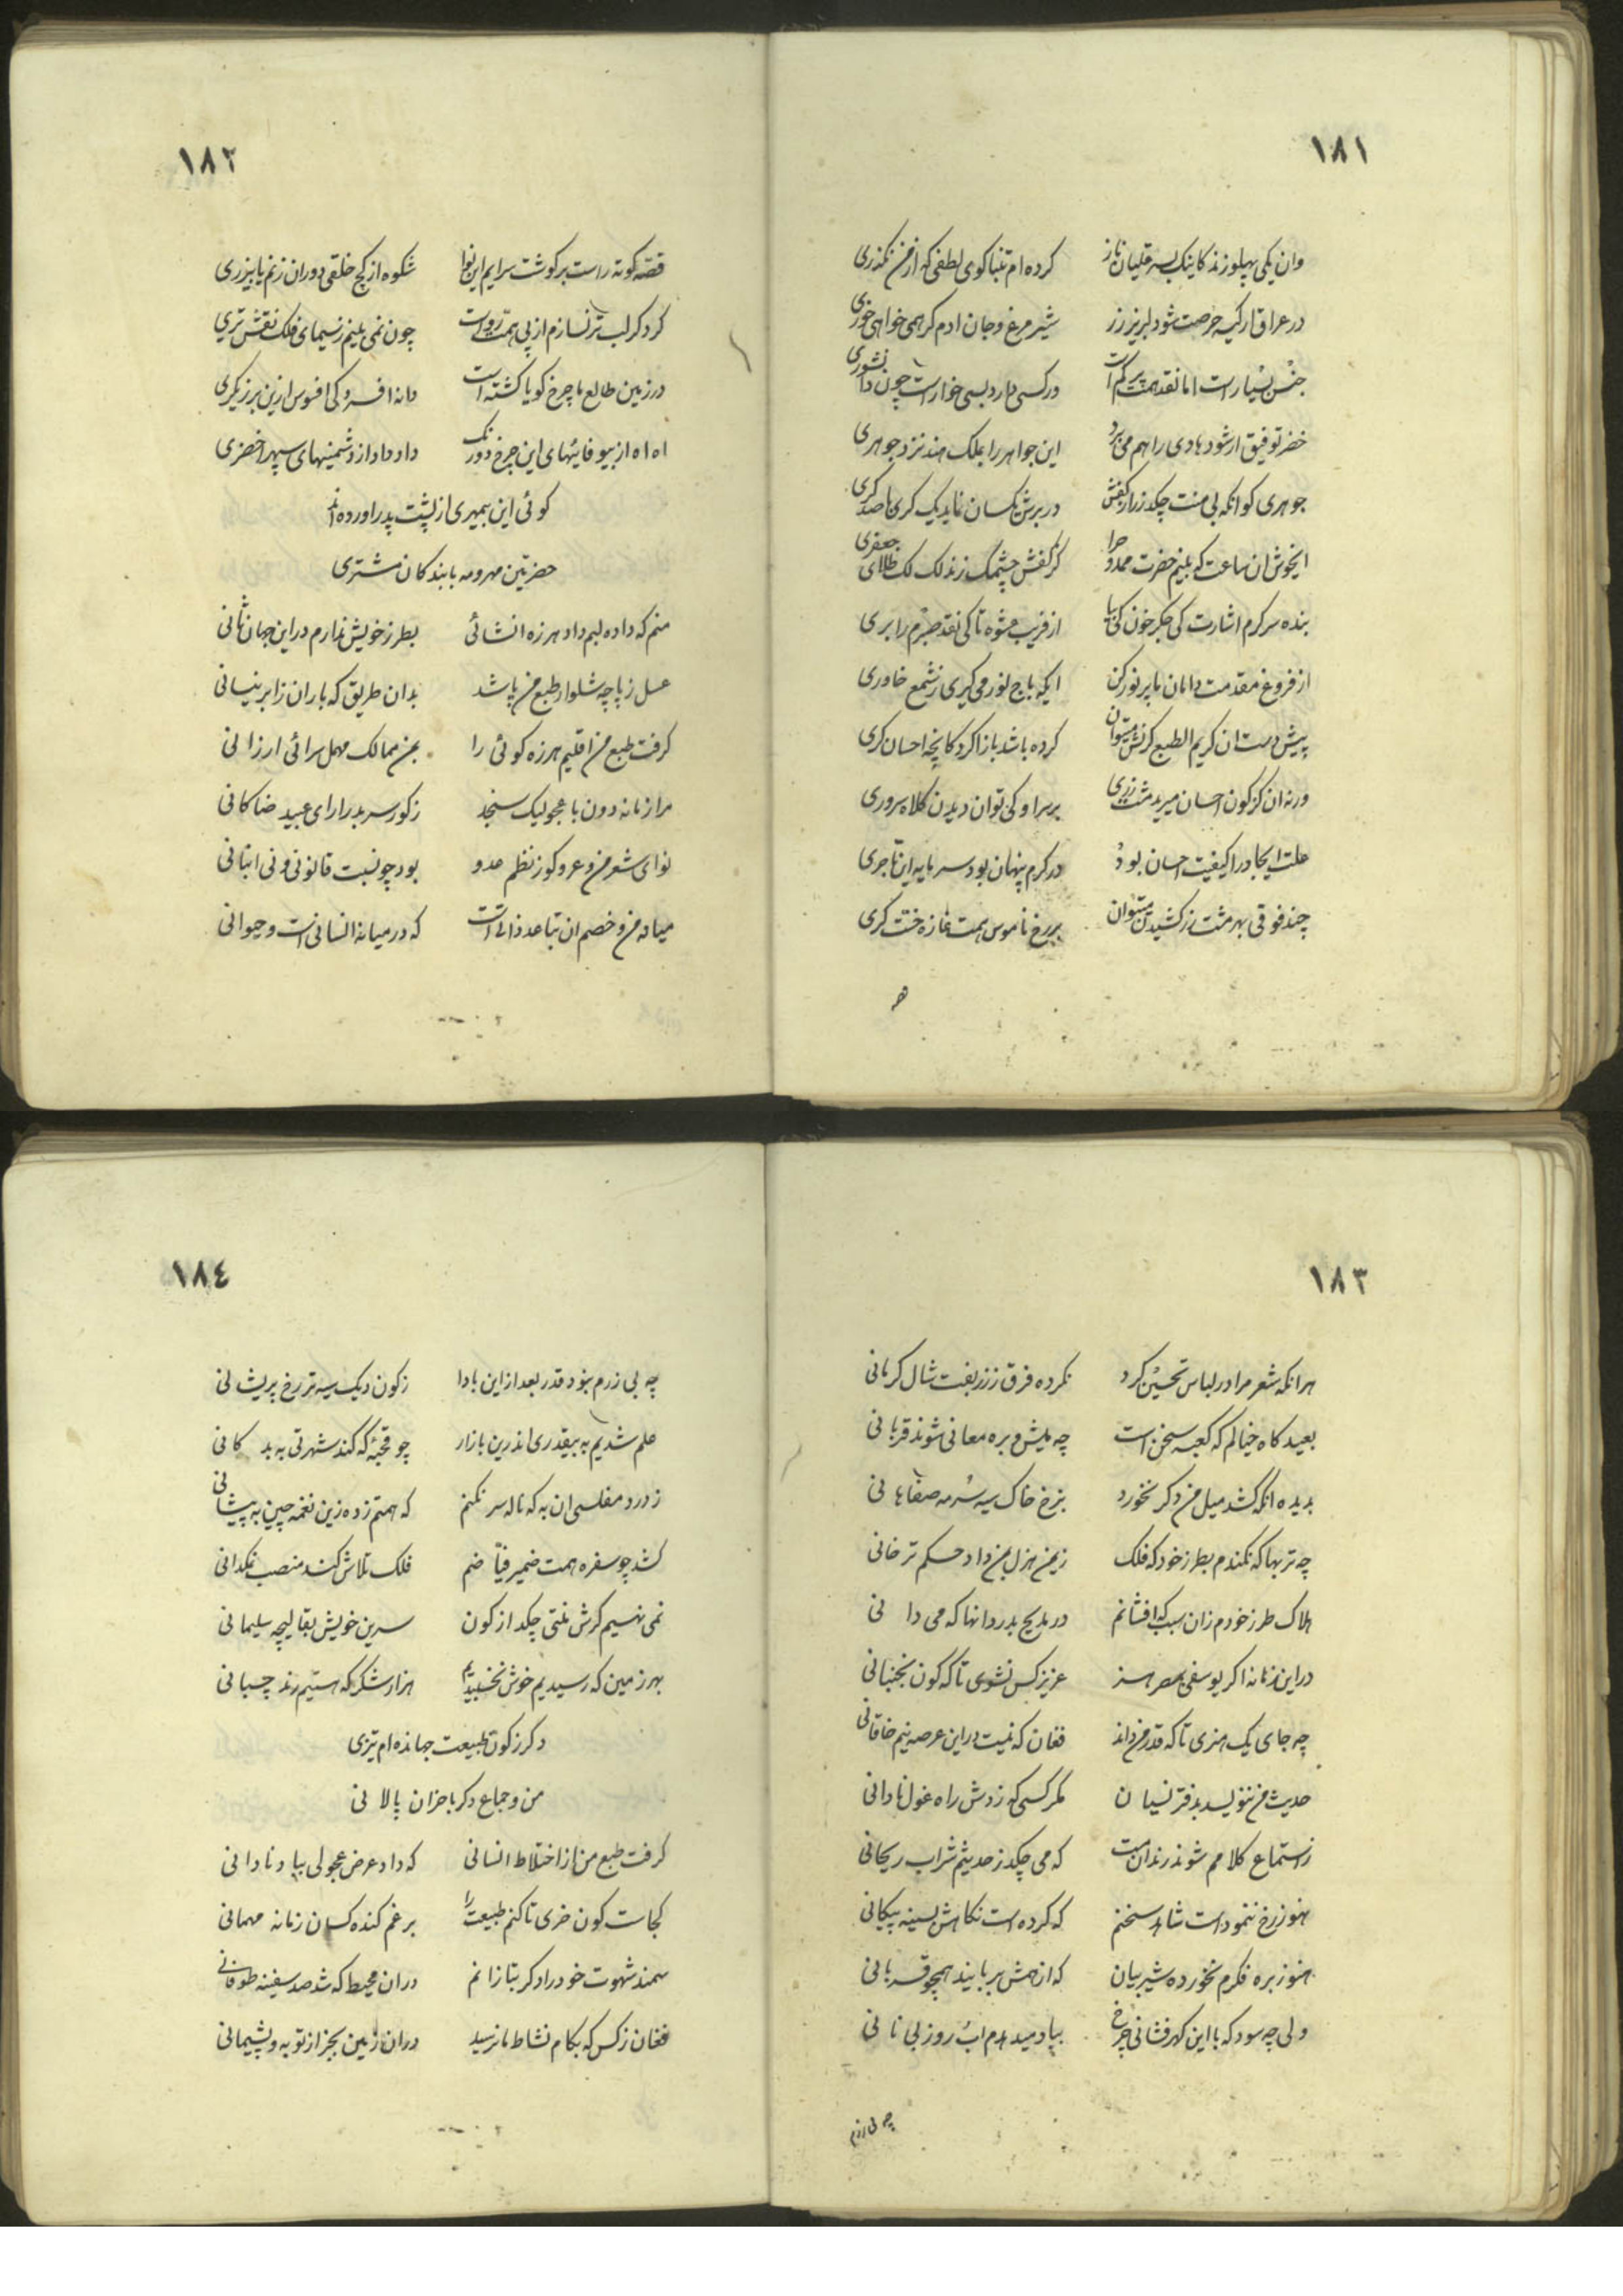 ١٨١
وان یکی پهلو زند کاینک بسر قلیان ناز کرده ام تنباکوی لطفی که از من نگذری
در عراق ار کیسه حرصت شود لبریز زر شیر مرغ و جان ادم کر همی خواهی خوری
جنس بسیار است اما نقد همت پر کم است در کسی دارد بسی خوار است چون دانشوری
خضر توفیق ار شود هادی راهم می برد این جواهر را بملک هند نزد جوهری
جوهری کو انکه بی منت چکد زر از کفش در برش یکسان نماید یک کری با صد کری
ایخوش ان ساعت که بینم حضرت ممدوح را کز کفش چشمک زند لک لک طلای جعفری
بنده سرکرم اشارت کی جکر خون کی بیا از فریب عشوه تا کی نقد صبرم را بری
از فروغ مقدمت دامان ما پر نور کن ایکه باج نور می کیری ز شمع خاوری
پیش دست ان کریم الطبع کز منش میتوان کرده باشد باز اکر دکانچه احسان کری
ورنه ان کز کون احسان میرید مشت زری بر سر او کی توان دیدن کلاه سروری
علت ایجاد را کیفیت احسان بود در کرم پنهان بود سرمایه این تاجری
چند فوقی بهر مشت زر کشیدن میتوان بر رخ ناموس همت غازه خنت کری
١٨٢
قصه کوته راست بر کوشت سرایم این نوا شکوه از کج خلقی دوران زنم یا بیزری
کرد کر لب تر نسازم از پی همت رواست چون نمی بینم ز سیمای فلک نقش تری
در زمین طالع ما چرخ کویا کشته است دانه افسردکی افسوس ازین برزیکری
اه اه از بیوفائیهای این چرخ دورنک داد داد از دشمنیهای سپهر اخضری
کوئی این بیمهری از پشت پدر اورده اند
حضرتین مهر و مه با بندکان مشتری
منم که داده لبم داد هرزه انشائی بطرز خویش ندارم در این جهان ثانی
عسل ز پاچه شلوار طبع من پاشد بدان طریق که باران ز ابر نیسانی
کرفت طبع من اقلیم هرزه کوئی را بمن ممالک مهمل سرائی ارزانی
مرا زمانه دون با عجولیک سنجد ز کور سر بدر ارای عبید ضاکانی
نوای شعر من و عر و کوز نظم عدو بود چو نسبت قانونی و نی انبانی
میانه من و خصم ان تباعد ذاتی است که در میانه انسانی است و حیوانی
١٨٣
هر انکه شعر مرا در لباس تحسین کرد نکرده فرق ز زربفت شال کرمانی
بعید کاه خیالم که کعبه سخن است چه میش و بره معانی شوند قربانی
بدیده انکه کشد میل من دکر نخورد بنرخ خاک سیه سرمه صفاهانی
چه تربها که نکندم بطرز خود که فلک زمین هزل بمن داد حسکم ترخانی
هلاک طرز خودم زان سبب که افشانم در مدیح بدر دانها که می دانی
در این زمانه اکر یوسفی بمصر هنر عزیز کس نشوی تا که کون نجنبانی
چه جای یک هنری تا که قدر من داند فغان که نیست در این عرصه نیم خاقانی
حدیث من ننویسد بدفتر نسیان مکر کسی که زدش راه غول نادانی
ز استماع کلامم شوند رندان مست که می چکد ز حدیثم شراب ریحانی
هنوز رخ ننموداست شاهد سخنم که کرده است نکاهش بسینه پیکانی
هنوز بره فکرم نخورده شیر بیان که از همش بربایند همچو قربانی
ولی چه سود که با این کهرفشانی چرخ بیاد میدهدم اب روز بی نانی
چه بی زرم
١٨٤
چه بی زرم بنود قدر بعد از این بادا ز کون دیک سیه تر رخ پریشانی
علم شدیم به بیقدری اندرین بازار چو قحبهٔ که کند شهرتی به بدکانی
ز درد مفلسی ان به که ناله سر نکنم که همتم زده زین نغمه چین به پیشانی
کشد چو سفره همت ضمیر فیاضم فلک تلاش کند منصب نمکدانی
نمی نهیم کرش منتی چکد از کون سرین خویش بقالیچه سلیمانی
بهر زمین که رسیدیم خوش نخسبیدیم هزار شکر که هستیم رند چسبانی
دکر ز کون طبیعت جهانده ام تیزی
من و جماع دکر با خران پالانی
کرفت طبع من از اختلاط انسانی که داد عرض عجولی بباد نادانی
کجاست کون خری تا کنم طبیعت را برغم کنده کسان زمانه مهمانی
سمند شهوت خود را دکر بتازانم دران محیط که شد صد سفینه طوفانی
فغان ز کس که بکام نشاط ما نرسید دران زمین بجز از توبه و پشیمانی